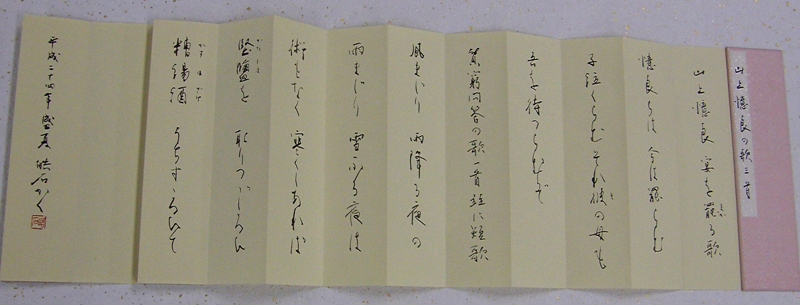 山上憶良の歌三首
山上憶良 宴を罷る歌
憶良らは 今は罷らむ
子泣くらむ それ彼の母も
吾を待つらむぞ
貧窮問答の歌一首並に短歌
風まじり 雨降る夜の
雨まじり 雪ふる夜は
術もなく 寒くしあれば
堅塩を 取りつづしろひ
糟湯酒 うちすゝろひて
平成二十四年盛夏